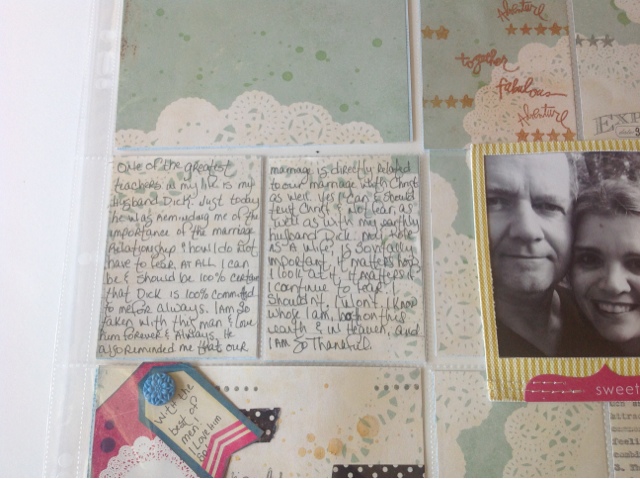 Adventure
together
fabulous
Adventure
EXP
One of the greatest
teachers in my life is my
Husband Dick. Just today
he was reminding me of the
importance of the marriage
Relationship & how I do not
have to fear AT ALL. I can
be & should be 100% certain
that Dick is 100% committed
to me for always. I am so
taken with this man & love
him forever & always. He
also reminded me that our
marriage is directly related
to our marriage with Christ
as well. Yes I can & should
trust Christ & not fear, as
well as with my earthly
husband Dick. My role
is "A wife" is so vitally
important, it matters how
I look at it, it matters if
I continue to fear. I
shouldn't, I won't. I know
whose I am, both on this
earth & in Heaven, and
I am so Thankful.
with the
best of
men.
I love him
so
sweet